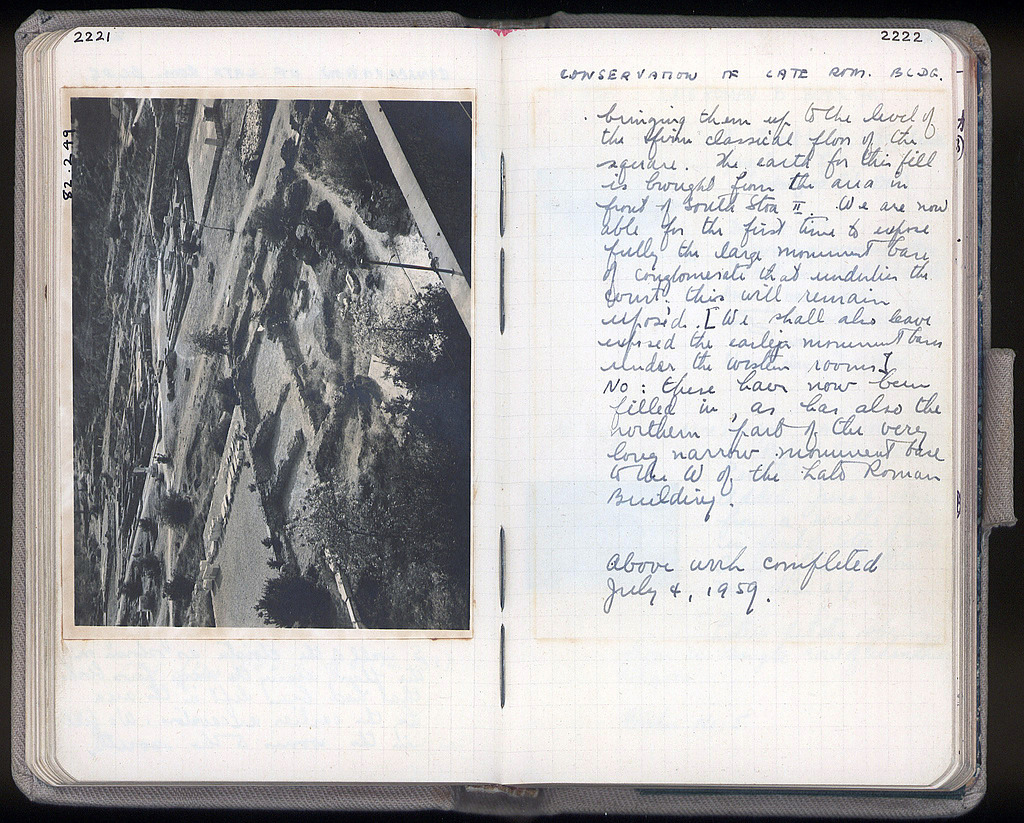 2221
82.299
2222
CONSERVATION OF LATE ROM. BLDG.
bringing them up to the level of
the firm classical floor of the
square. The earth for this fill
is brought from the area in
front of South Stoa II. We are now
able for the first time to expose
fully the large monument base
of conglomerate that underlies the
court: this will remain
exposed. [We shall also leave
exposed the earlier monument bases
under the western rooms]
No: these have now been
filled in, as has also the
northern part of the very
long narrow monument base
to the W of the Late Roman
Building.
Above work completed
July 4, 1959.